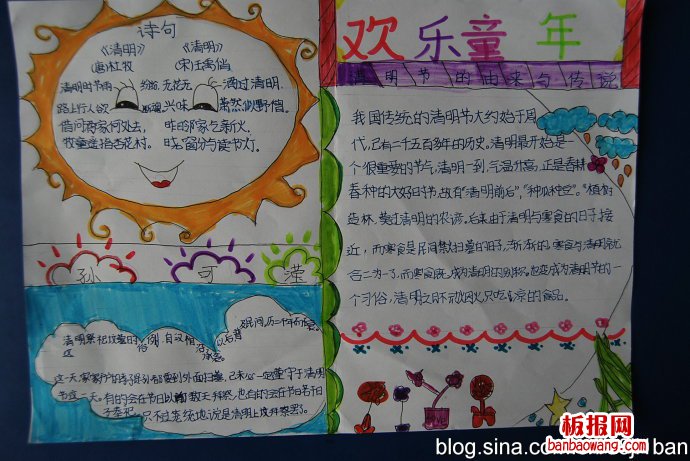 诗句
《清明》 《清明》
(唐)杜牧 (宋)王禹偁
清明时节雨纷纷
路上行人欲断魂
借问酒家何处去,
牧童遥指杏花村。
无花无酒过清明,
兴味萧然似野僧。
昨日邻家乞新火,
晓窗分与读书灯。
孙 可 滢
欢乐童年
清明节的由来与传说
我国传统的清明节大约始于周
代,已有二千五百多年的历史。清明最开始是一
个很重要的节气,清明一到,气温升高,正是春耕
春种的大好时节,故有"清明前后","种瓜种豆"。"植树
造林,莫过清明的农谚。后来由于清明与寒食的日子接
近,而寒食是民间禁火扫墓的日子,渐渐的,寒食与清明就
合二为一了,而寒食既成为清明的别称,也变成为清明节的一
个习俗,清明之日不动烟火,只吃凉的食品。
清明祭扫坟茔的
这一天,家家户户
清明
节这一天。有的会在节日
子祭祀
只不过笼统地说是清明上坟祭祭罢。
LOVE
板报网
banbaowang.com
blog.sina.com
ban